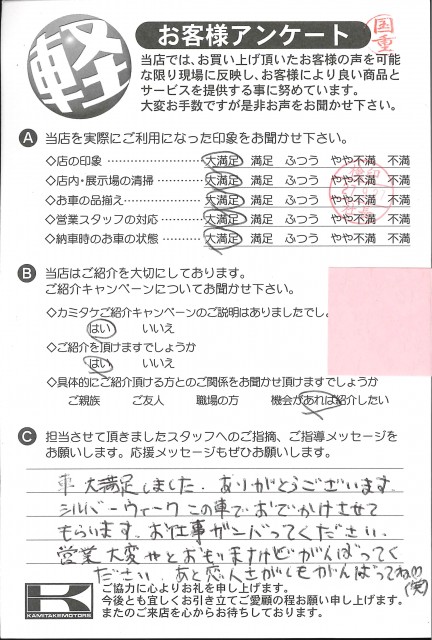 軽
お客様アンケート
国重
当店では、お買い上げ頂いたお客様の声を可能
な限り現場に反映し、お客様により良い商品と
サービスを提供する事に努めています。
大変お手数ですが是非お声をお聞かせ下さい。
A 当店を実際にご利用になった印象をお聞かせ下さい。
◇店の印象 大満足 満足 ふつう やや不満 不満
◇店内・展示場の清掃 大満足 満足 ふつう やや不満 不満
◇お車の品揃え 大満足 満足 ふつう やや不満 不満
◇営業スタッフの対応 大満足 満足 ふつう やや不満 不満
◇納車時のお車の状態 大満足 満足 ふつう やや不満 不満
B 当店はご紹介を大切にしております。
ご紹介キャンペーンについてお聞かせ下さい。
◇カミタケご紹介キャンペーンのご説明はありましたでし
はい いいえ
◇ご紹介を頂けますでしょうか
はい いいえ
◇具体的にご紹介頂ける方とのご関係をお聞かせ頂けますでしょうか
ご親族 ご友人 職場の方 機会があれば紹介したい
C 担当させて頂きましたスタッフへのご指摘、ご指導メッセージを
お願いします。応援メッセージもぜひお願いします。
車 大満足しました。ありがとうございます。
シルバーウィーク この車で、おでかけさせて
もらいます。お仕事ガンバってください。
営業大変やとおもいますけどがんばってく
ださい。あと恋人さがしもがんばってね!!!
(笑)
K
KAMITAKEMOTORS
ご協力に心よりお礼を申し上げます。
今後とも宜しくお引き立てご愛顧の程お願い申し上げます。
またのご来店を心からお待ちしております。